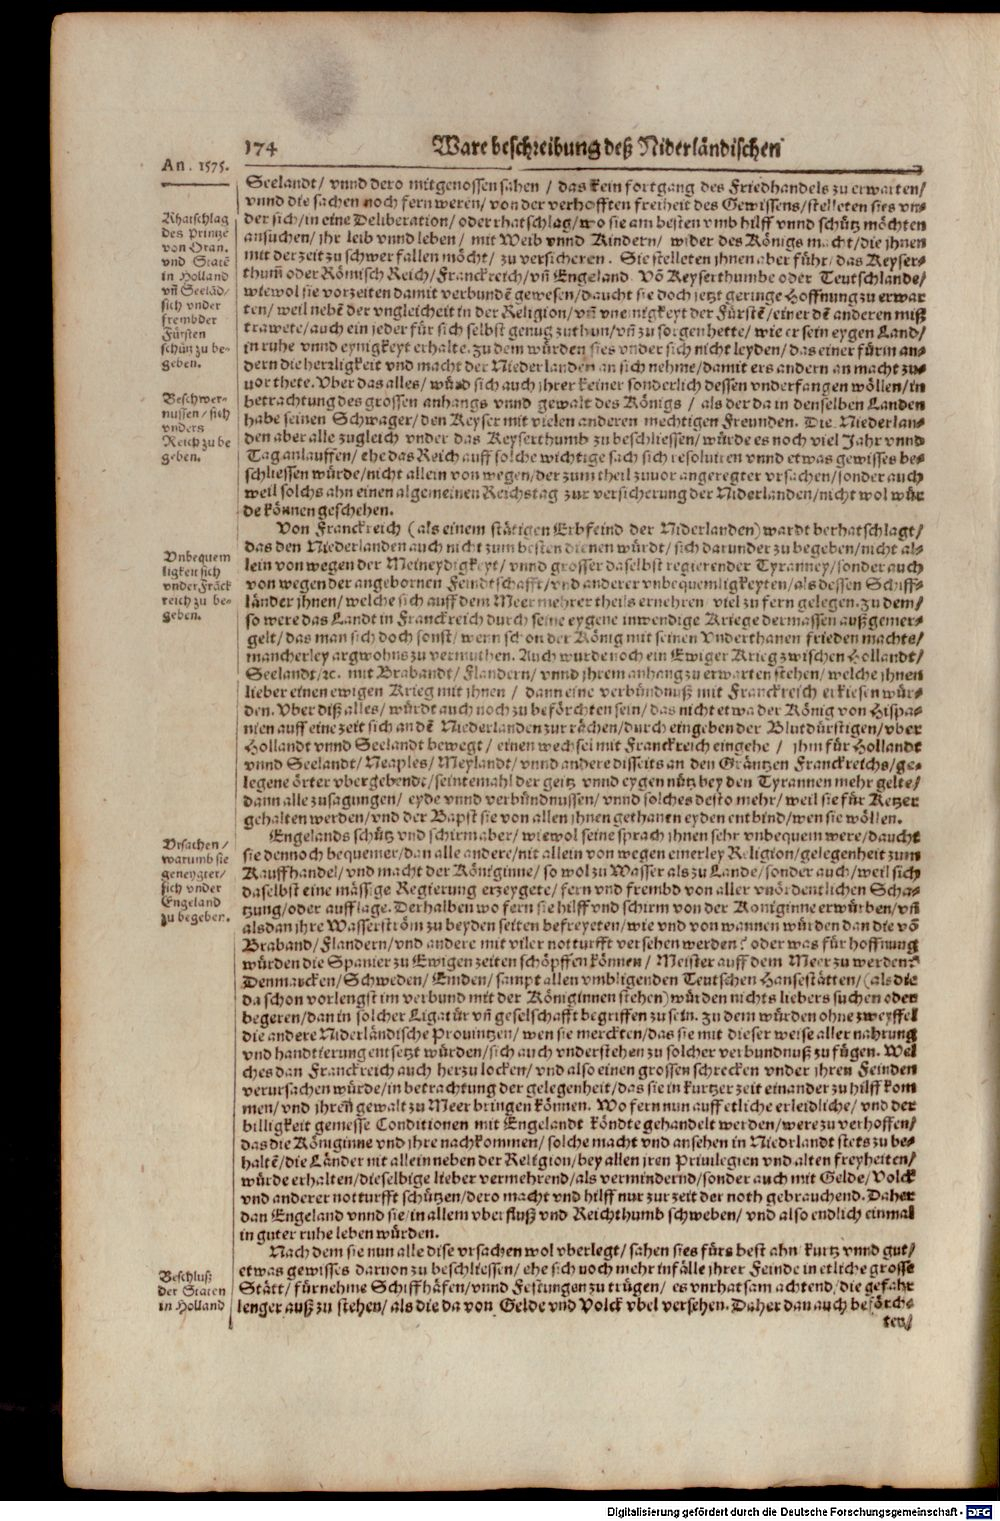 174 Ware beschreibung deß Niderländischen
An. 1575.
Seelandt/ vnnd dero mitgenossen sahen / das kein fortgang des Friedhandels zu erwarten/
vnnd die sachen noch fern weren/ von der verhofften freiheit des Gewissens/ stelleten sies vn-
der sich/ in eine Deliberation/ oder rhatschlag/ wo sie am besten vmb hilff vnnd schütz möchten
ansuchen/ jhr leib vnnd leben/ mit Weib vnnd Kindern/ wider des Königs macht/ die jhnen
mit der zeit zu schwer fallen möcht/ zu versicheren. Sie stelleten jhnen aber führ/ das Keyser-
thum̃ oder Römisch Reich/ Franckreich/ vñ Engeland. Võ Keyserthumbe oder Teutschlande/
wiewol sie vorzeiten damit verbundẽ gewesen/ daucht sie doch jetzt geringe Hoffnung zu erwar
ten/ weil nebẽ der vngleicheit in der Religion/ vñ vneinigkeyt der Fürstẽ/ einer dẽ anderen miß
trawete/ auch ein jeder für sich selbst genug zuthun/ vñ zu sorgen hette/ wie er sein eygen Land/
in ruhe vnnd eynigkeyt erhalte. Zu dem würden sies vnder sich nicht leyden/ das einer fürm an-
dern die herrligkeit vnd macht der Niederlanden an sich nehme/ damit ers andern an macht zu-
uor thete. Vber das alles/ würd sich auch jhrer keiner sonderlich dessen vnderfangen wöllen/ in
betrachtung des grossen anhangs vnnd gewalt des Königs / als der da in denselben Landen
habe seinen Schwager/ den Keyser mit vielen anderen mechtigen Freunden. Die Niederlan-
den aber alle zugleich vnder das Keyserthumb zu beschliessen/ würde es noch viel Jahr vnnd
Tag anlauffen/ ehe das Reich auff solche wichtige sach sich resoluiren vnnd etwas gewisses be-
schliessen würde/ nicht allein von wegen/ der zum theil zuuor angeregter vrsachen/ sonder auch
weil solchs ahn einen algemeinen Reichstag zur versicherung der Niderlanden/ nicht wol wür
de können geschehen.
Rhatschlag
des Printzẽ
von Oran.
vnd Statẽ
in Holland
vñ Seelãd/
sich vnder
frembder
Fürsten
schütz zu be-
geben.
Beschwer-
nussen/ sich
vnders
Reich zu be
geben.
Von Franckreich (als einem stätigen Erbfeind der Niderlanden) wardt berhatschlagt/
das den Niederlanden auch nicht zum besten dienen würdt/ sich darunder zu begeben/ nicht al-
lein von wegen der Meineydigkeyt/ vnnd grosser daselbst regierender Tyranney/ sonder auch
von wegen der angebornen Feindtschafft/ vnd anderer vnbequemligkeyten/ als dessen Schiff-
länder jhnen/ welche sich auff dem Meer mehrer theils ernehren/ viel zu fern gelegen. Zu dem/
so were das Landt in Franckreich durch seine eygene inwendige Kriege dermassen außgemer-
gelt/ das man sich doch sonst/ wenn schon der König mit seinen Vnderthanen frieden machts/
mancherley argwohns zu vermuthen. Auch wurde noch ein Ewiger Krieg zwischen Hollandt/
Seelandt/ ꝛc. mit Brabandt/ Flandern/ vnnd jhrem anhang zu erwarten stehen/ welche jhnen
lieber einen ewigen Krieg mit jhnen / dann eine verbündnuß mit Franckreich erkiesen wür-
den. Vber diß alles/ würdt auch noch zu beförchten sein/ das nicht etwa der König von Hispa-
nien auff eine zeit sich an dẽ Niederlanden zu rächen/ durch eingeben der Blutdürstigen/ vber
Hollandt vnnd Seelandt bewegt / einen wechsel mit Franckreich eingehe / jhm für Hollandt
vnnd Seelandt/ Neaples/ Meylandt/ vnnd andere disseits an den Gräntzen Franckreichs/ ge-
legene örter vbergebende/ seintemahl der geitz vnnd eygen nütz bey den Tyrannen mehr gelte/
dann alle zusagungen/ eyde vnnd verbündnussen/ vnnd solches desto mehr/ weil sie für Ketzer
gehalten werden/ vnd der Bapst sie von allen jhnen gethanen eyden entbind/ wen sie wöllen.
Vnbequem
ligkeit sich
vnder Frãck
reich zu be-
geben.
Engelands schütz vnd schirm aber/ wiewol seine sprach jhnen sehr vnbequem were/ daucht
sie dennoch bequemer/ dan alle andere/ nit allein von wegen einerley Religion/ gelegenheit zum
Kauffhandel/ vnd macht der Königinne/ so wol zu Wasser als zu Lande/ sonder auch/ weil sich
daselbst eine mässige Regierung erzeygete/ fern vnd frembd von aller vnördentlichen Scha-
tzung/ oder aufflage. Derhalben wo fern sie hilff vnd schirm von der Königinne erwürben/ vñ
alsdan jhre Wasserström zu beyden seiten befreyeten/ wie vnd von wannen würden dan die võ
Braband/ Flandern/ vnd andere mit viler notturfft versehen werden? oder was für hoffnung
würden die Spanier zu Ewigen zeiten schöpffen können / Meister auff dem Meer zu werden?
Denmarcken/ Schweden/ Emden/ sampt allen vmbligenden Teutschen Hansestätten/ (als die
da schon vorlengst im verbund mit der Königinnen stehen) würden nichts liebers suchen oder
begeren/ dan in solcher Ligatür vñ geselschafft begriffen zu sein. Zu dem würden ohne zweyffel
die andere Niderländische Prouintzen/ wen sie merckten/ das sie mit dieser weise aller nahrung
vnd handtierung entsetzt würden/ sich auch vnderstehen zu solcher verbundnuß zu fügen. Wel
ches dan Franckreich auch herzu locken/ vnd also einen grossen schrecken vnder jhren Feinden
verursachen würde/ in betrachtung der gelegenheit/ das sie in kurtzer zeit einander zu hilff kom
men/ vnd jhren gewalt zu Meer bringen können. Wo fern nun auff etliche erleidliche/ vnd der
billigkeit gemesse Conditionen mit Engelandt köndte gehandelt werden/ were zu verhoffen/
das die Königinne vnd jhre nachkommen/ solche macht vnd ansehen in Niedrlandt stets zu be-
haltẽ/ die Länder nit allein neben der Religion/ bey allen jren Priuilegien vnd alten freyheiten/
würde erhalten/ dieselbige lieber vermehrend/ als vermindernd/ sonder auch mit Gelde/ Volck
vnd anderer notturfft schützen/ dero macht vnd hilff nur zur zeit der noth gebrauchend. Daher
dan Engeland vnnd sie/ in allem vberfluß vnd Reichthumb schweben/ vnd also endlich einmal
in guter ruhe leben würden.
Vrsachen/
warumb sie
geneygter/
sich vnder
Engeland
zu begeben.
Nach dem sie nun alle dise vrsachen wol vberlegt/ sahen sies fürs best ahn/ kurtz vnnd gut/
etwas gewisses daruon zu beschliessen/ ehe sich noch mehr infälle jhrer Feinde in etliche grosse
Stätt/ fürnehme Schiffhäfen/ vnnd Festungen zu trügen/ es vnrhatsam achtend/ die gefahr
lenger auß zu stehen/ als die da von Gelde vnd Volck vbel versehen. Daher dan auch beförch-
ten/
Beschluß
der Staten
in Holland
Digitalisierung gefördert durch die Deutsche Forschungsgemeinschaft - DFG